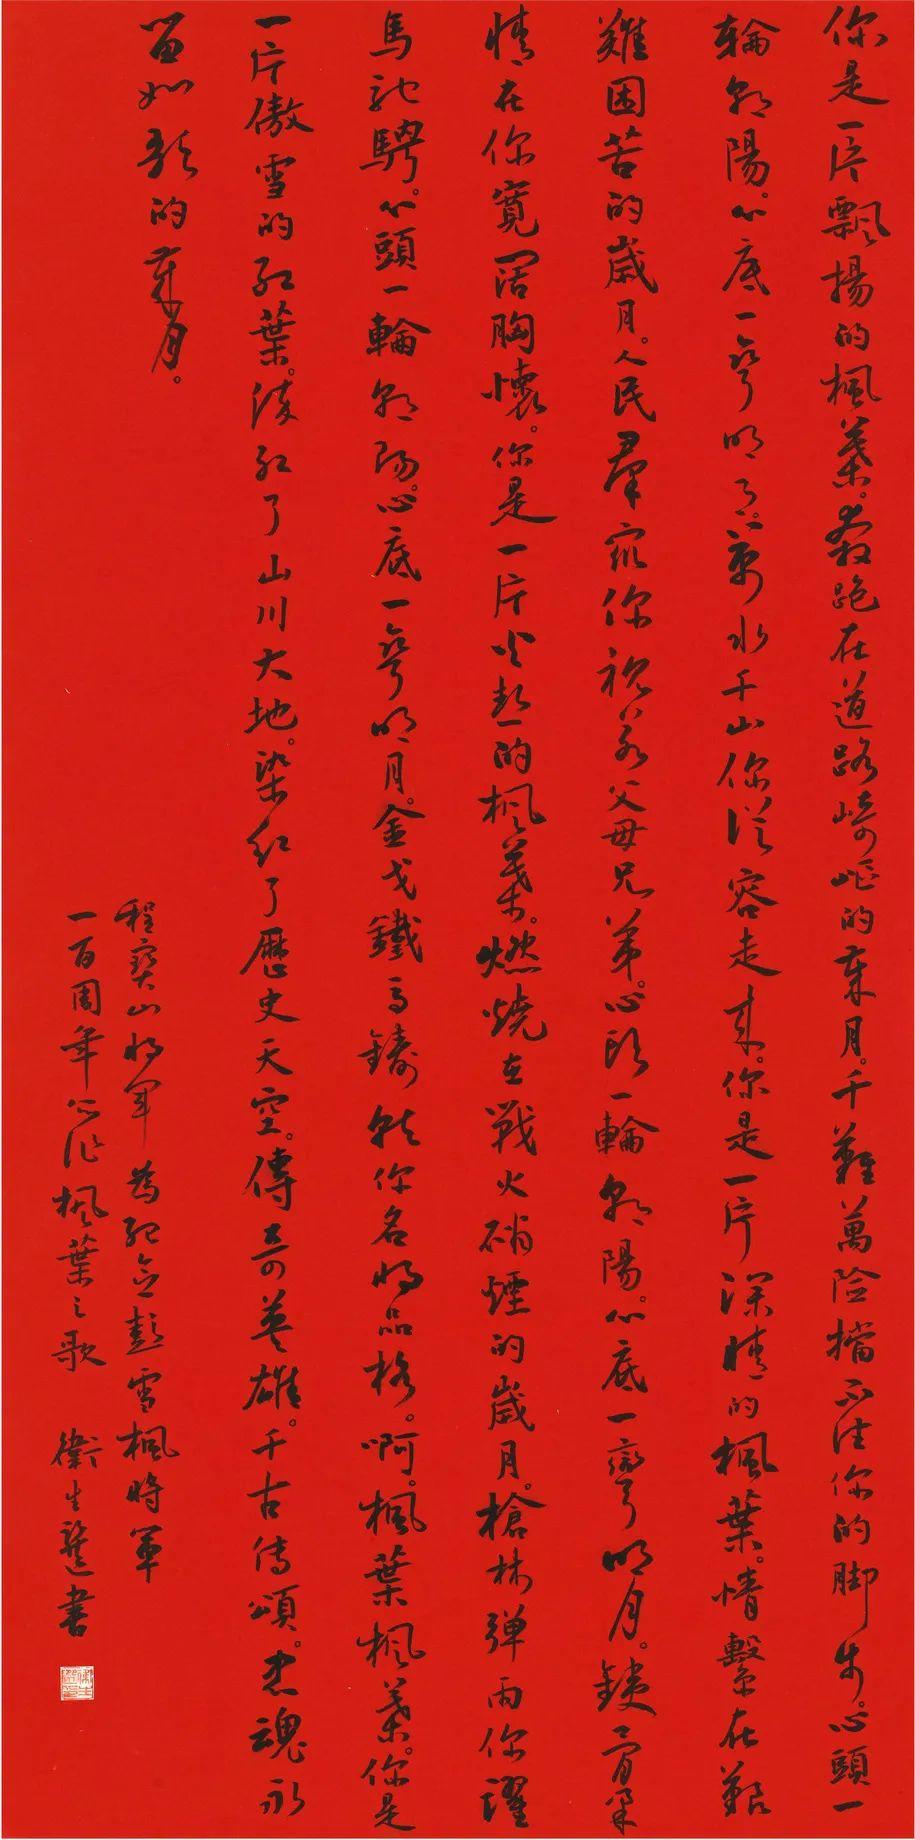 你是一片飄揚的楓葉。奔跑在道路崎嶇的歲月。千難萬险擋不住你的脚步。心頭一
輪朝陽。心底一彎明月。萬水千山你從容走来。你是一片深情的楓葉。情繫在艱
難困苦的歲月。人民羣衆你視若父母兄弟。心頭一輪朝陽。心底一彎明月。鐵骨柔
情在你寬闊胸懷。你是一片火熱的楓葉。燃燒在戰火硝煙的歲月。槍林弹雨你躍
馬馳騁。心頭一輪朝陽。心底一彎明月。金戈鐵馬鑄就你名将品格。啊。楓葉楓葉。你是
一片傲雪的红葉。浸红了山川大地。染红了歷史天空。傳奇英雄。千古传頌。忠魂永
留如歌的歲月。
程寶山将军為紀念彭雪楓將軍
一百周年而作楓葉之歌 衛生 書